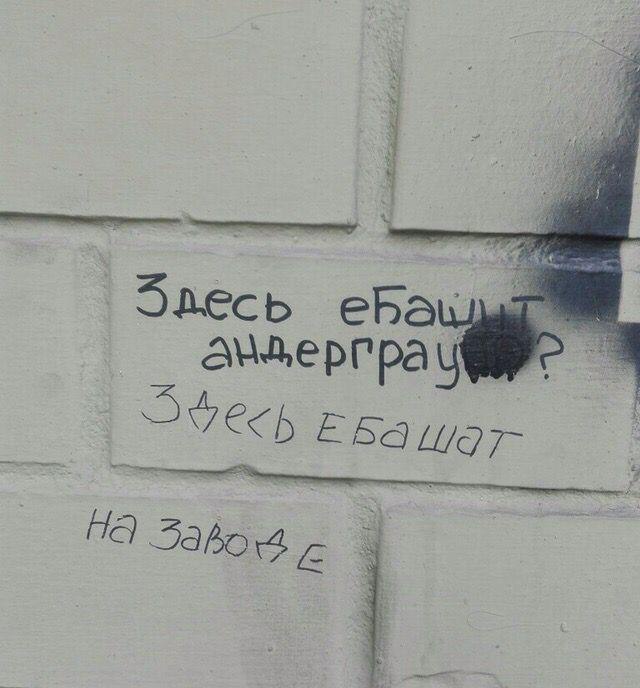 Здесь еБашит
андерграу ?
Здесь ЕБашат
на заводЕ